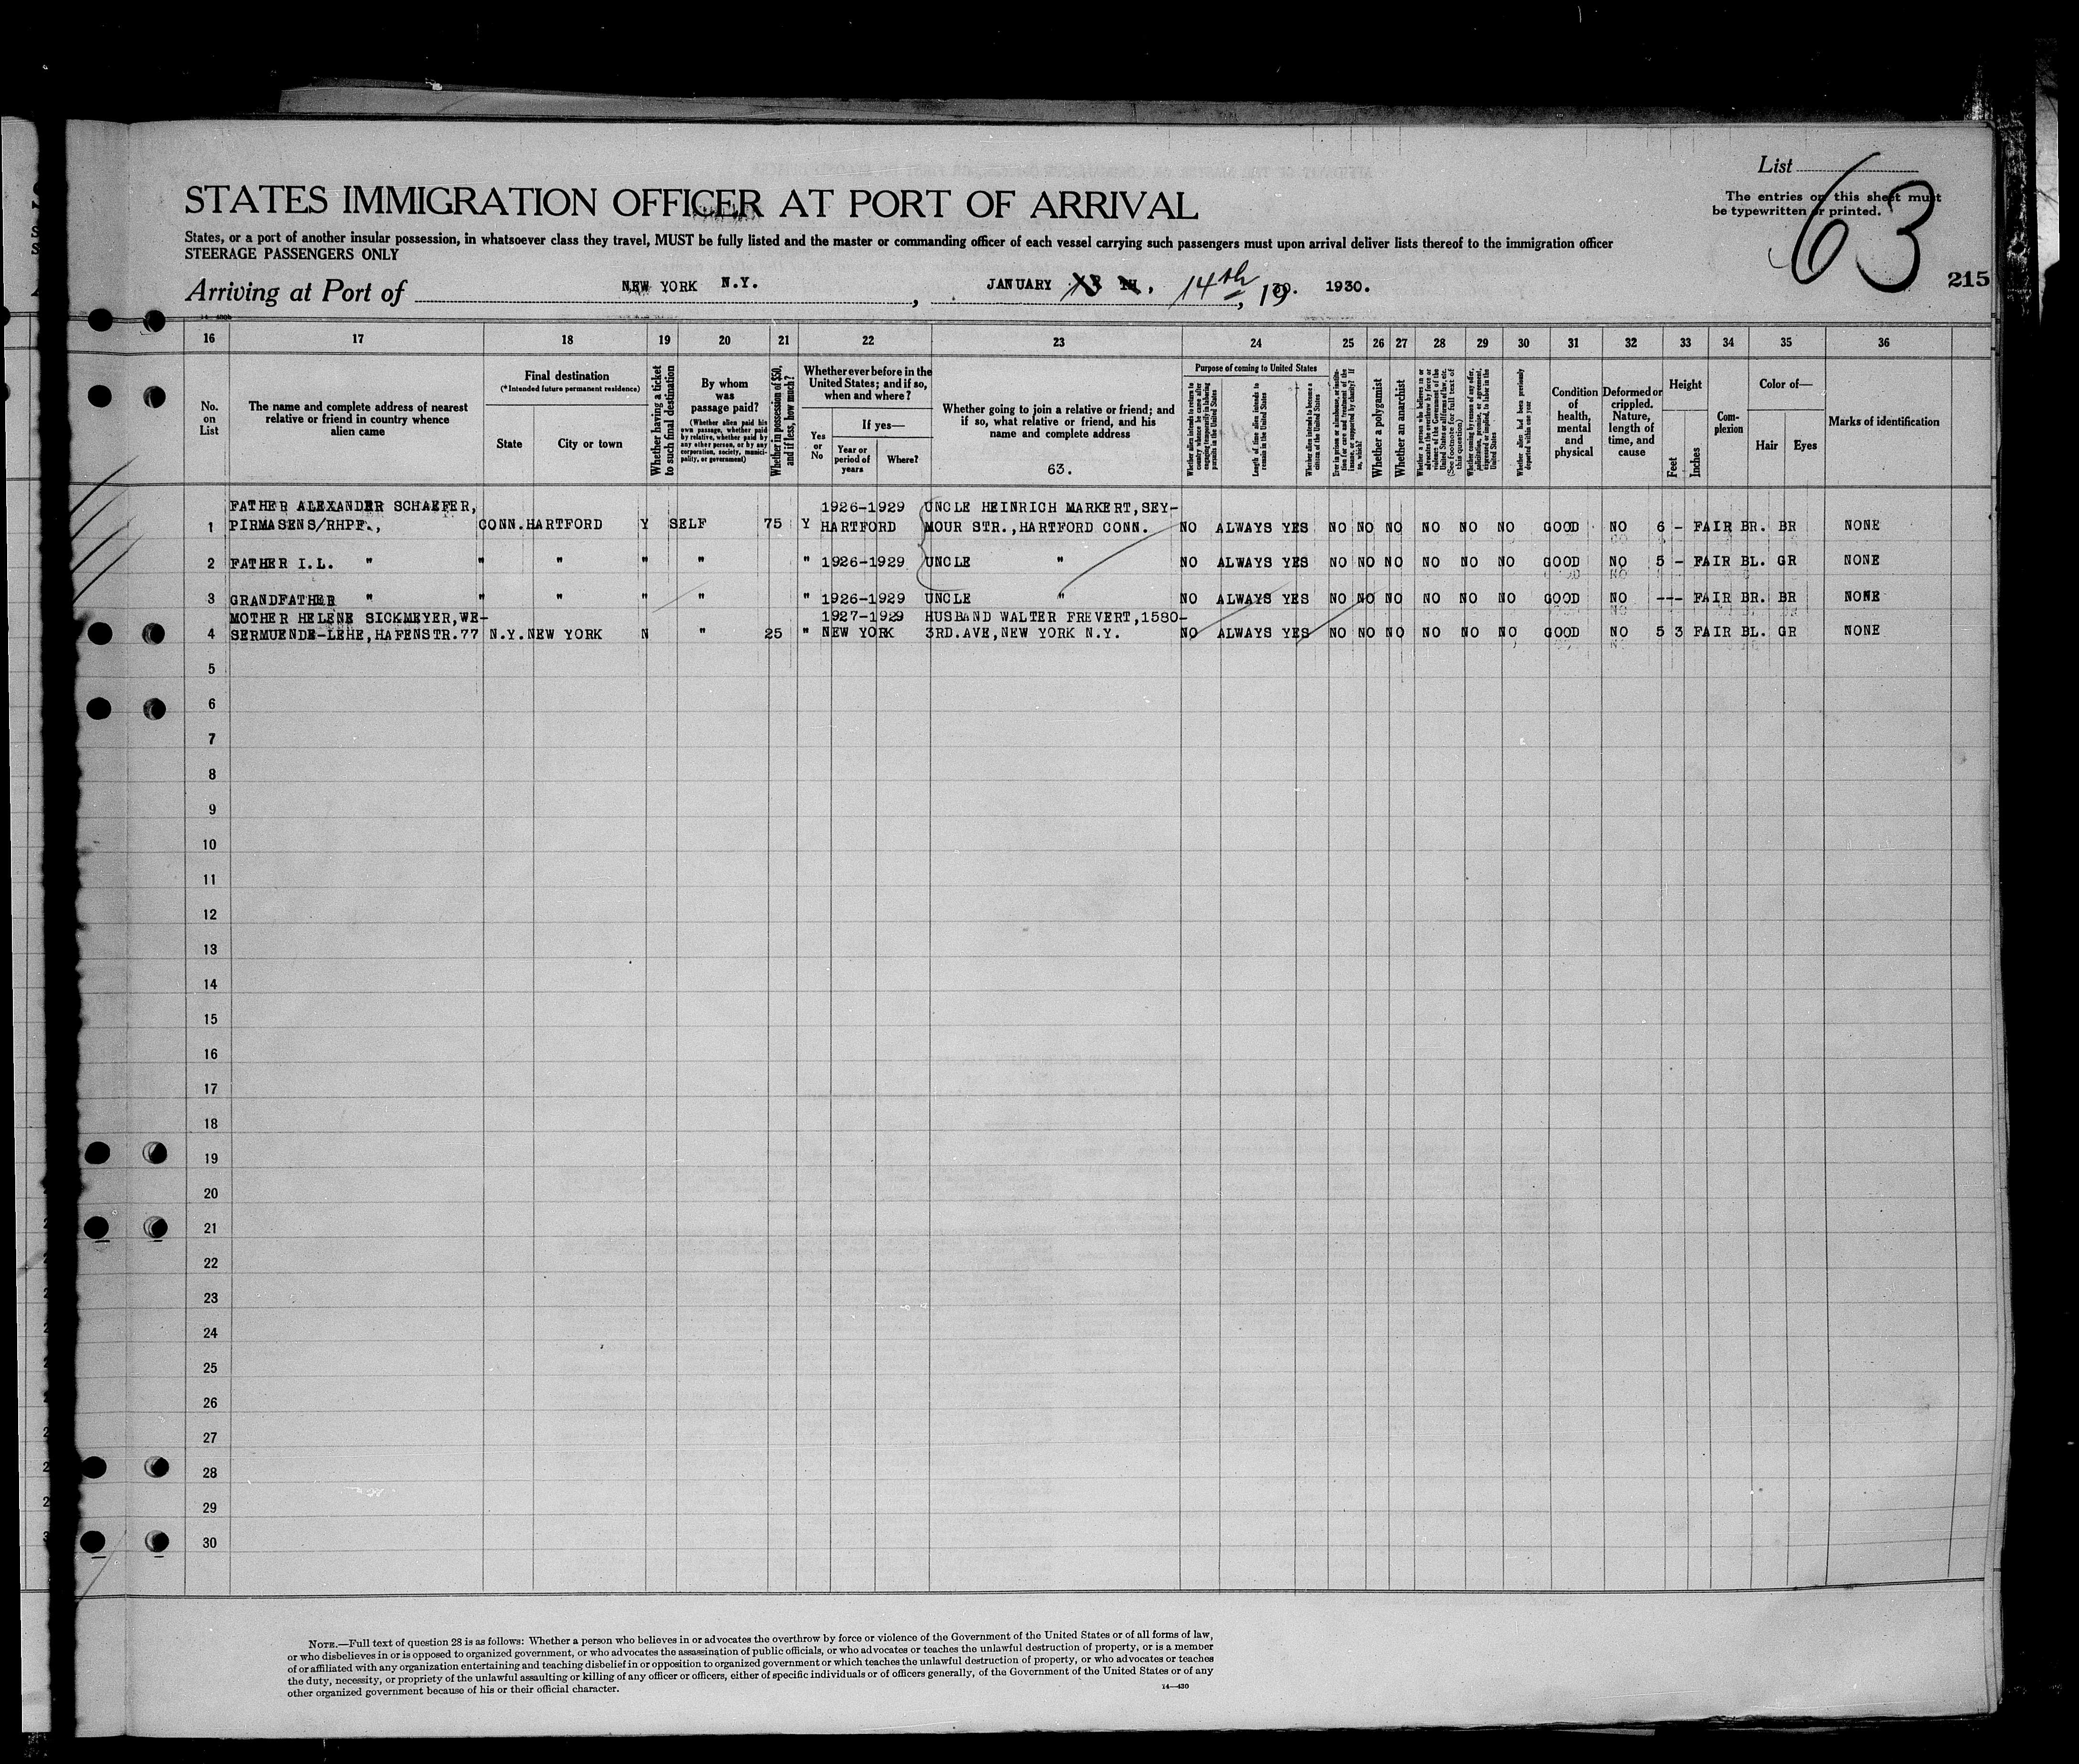 List
63
The entries on this sheet must
be typewritten or printed.
STATES IMMIGRATION OFFICER AT PORT OF ARRIVAL
States, or a port of another insular possession, in whatsoever class they travel, MUST be fully listed and the master or commanding officer of each vessel carrying such passengers must upon arrival deliver lists thereof to the immigration officer
STEERAGE PASSENGERS ONLY
215
Arriving at Port of NEW YORK N.Y., JANUARY 13 TH, 14th, 1930. 1930.
16 17 18 19 20 21 22 23 24 25 26 27 28 29 30 31 32 33 34 35 36
No.
on
List
The name and complete address of nearest
relative or friend in country whence
alien came
Final destination
(*Intended future permanent residence)
State
City or town
Whether having a ticket
to such final destination
By whom
was
passage paid?
(Whether alien paid his
own passage, whether paid
by relative, whether paid by
any other person, or by any
corporation, society, munici-
pality, or government)
Whether in possession of $50,
and if less, how much?
Whether ever before in the
United States; and if so,
when and where?
Yes
or
No
If yes—
Year or
period of
years
Where?
Whether going to join a relative or friend; and
if so, what relative or friend, and his
name and complete address
63.
Purpose of coming to United States
Whether alien intends to return to
country whence he came after
engaging temporarily in laboring
pursuits in the United States
Length of time alien intends to
remain in the United States
Whether alien intends to become a
citizen of the United States
Ever in prison or almshouse, or institu-
tion for care and treatment of the
insane, or supported by charity? If
so, which?
Whether a polygamist
Whether an anarchist
Whether a person who believes in or
advocates the overthrow by force or
violence of the Government of the
United States or all forms of law, etc.
(See footnote for full text of
this question)
Whether coming by reason of any offer,
solicitation, promise, or agreement,
expressed or implied, to labor in the
United States
Whether alien had been previously
deported within one year
Condition
of
health,
mental
and
physical
Deformed or
crippled.
Nature,
length of
time, and
cause
Height
Feet
Inches
Com-
plexion
Color of—
Hair
Eyes
Marks of identification
FATHER ALEXANDER SCHAEFER, 1926-1929 UNCLE HEINRICH MARKERT, SEY-
1 PIRMASENS/RHPF., CONN. HARTFORD Y SELF 75 Y HARTFORD MOUR STR., HARTFORD CONN. NO ALWAYS YES NO NO NO NO NO NO GOOD NO 6 - FAIR BR. BR NONE
2 FATHER I.L. " " " " " " 1926-1929 UNCLE " NO ALWAYS YES NO NO NO NO NO NO GOOD NO 5 - FAIR BL. GR NONE
3 GRANDFATHER " " " " " " 1926-1929 UNCLE " NO ALWAYS YES NO NO NO NO NO NO GOOD NO --- FAIR BR. BR NONE
MOTHER HELENE SICKMEYER, WE- 1927-1929 HUSBAND WALTER FREVERT, 1580-
4 SERMUENDE-LEHE, HAFENSTR.77 N.Y. NEW YORK N " 25 " NEW YORK 3RD. AVE, NEW YORK N.Y. NO ALWAYS YES NO NO NO NO NO NO GOOD NO 5 3 FAIR BL. GR NONE
5
6
7
8
9
10
11
12
13
14
15
16
17
18
19
20
21
22
23
24
25
26
27
28
29
30
NOTE.—Full text of question 28 is as follows: Whether a person who believes in or advocates the overthrow by force or violence of the Government of the United States or of all forms of law,
or who disbelieves in or is opposed to organized government, or who advocates the assassination of public officials, or who advocates or teaches the unlawful destruction of property, or is a member
of or affiliated with any organization entertaining and teaching disbelief in or opposition to organized government or which teaches the unlawful destruction of property, or who advocates or teaches
the duty, necessity, or propriety of the unlawful assaulting or killing of any officer or officers, either of specific individuals or of officers generally, of the Government of the United States or of any
other organized government because of his or their official character.
14—430